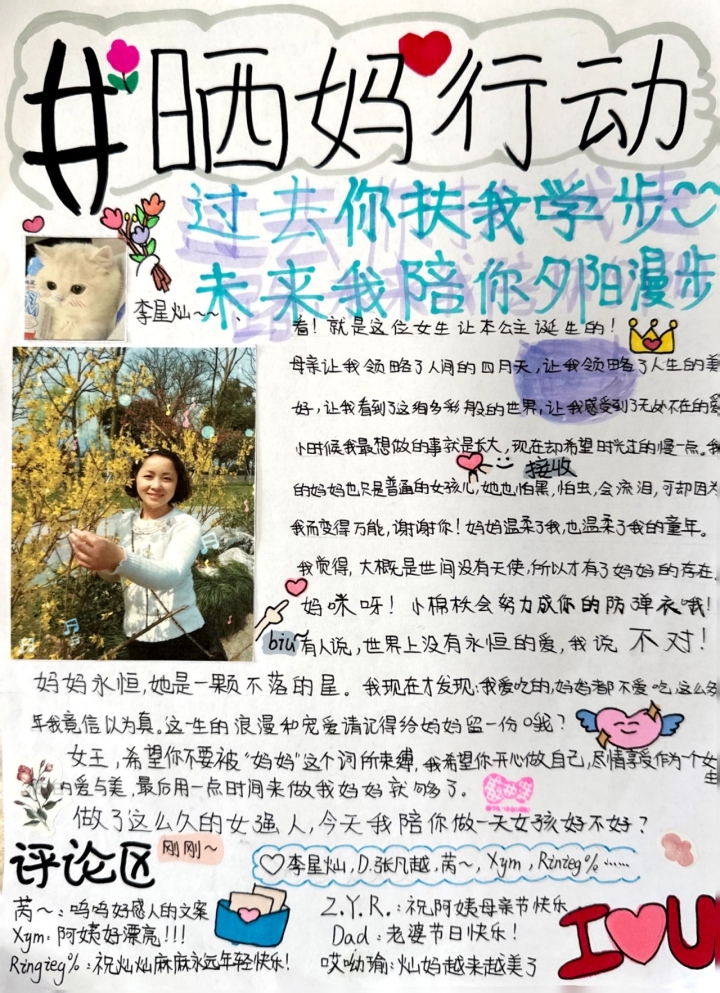 #晒妈行动
过去你扶我学步
未来我陪你夕阳漫步
李星灿~~
看！就是这位女生让本公主诞生的！
母亲让我领略了人间的四月天，让我领略了人生的美
好，让我看到了这缤多彩般的世界，让我感受到了无处不在的爱
小时候我最想做的事就是长大，现在却希望时光过的慢一点。我
接收
的妈妈也只是普通的女孩儿，她也怕黑，怕虫，会流泪，可却因为
我而变得万能，谢谢你！妈妈温柔了我，也温柔了我的童年。
我觉得，大概是世间没有天使，所以才有了妈妈的存在，
妈咪呀！小棉袄会努力成你的防弹衣哦！
biu~
有人说，世界上没有永恒的爱，我说 不对！
妈妈永恒，她是一颗不落的星。我现在才发现：我爱吃的，妈妈都不爱吃，这么多
年我竟信以为真。这一生的浪漫和宠爱请记得给妈妈留一份哦？
女王，希望你不要被“妈妈”这个词所束缚，我希望你开心做自己，尽情享受作为一个女生
的爱与美，最后用一点时间来做我妈妈就够了。
做了这么久的女强人，今天我陪你做一天女孩好不好？
评论区
刚刚~
♡李星灿，D.张凡越，芮~，Xym，Rinieg%……
芮~：呜呜好感人的文案
Xym：阿姨好漂亮!!!
Ringieg%：祝灿灿麻麻永远年轻快乐！
Z.Y.R.：祝阿姨母亲节快乐
Dad：老婆节日快乐！
哎呦瑜：灿妈越来越美了
I♡U